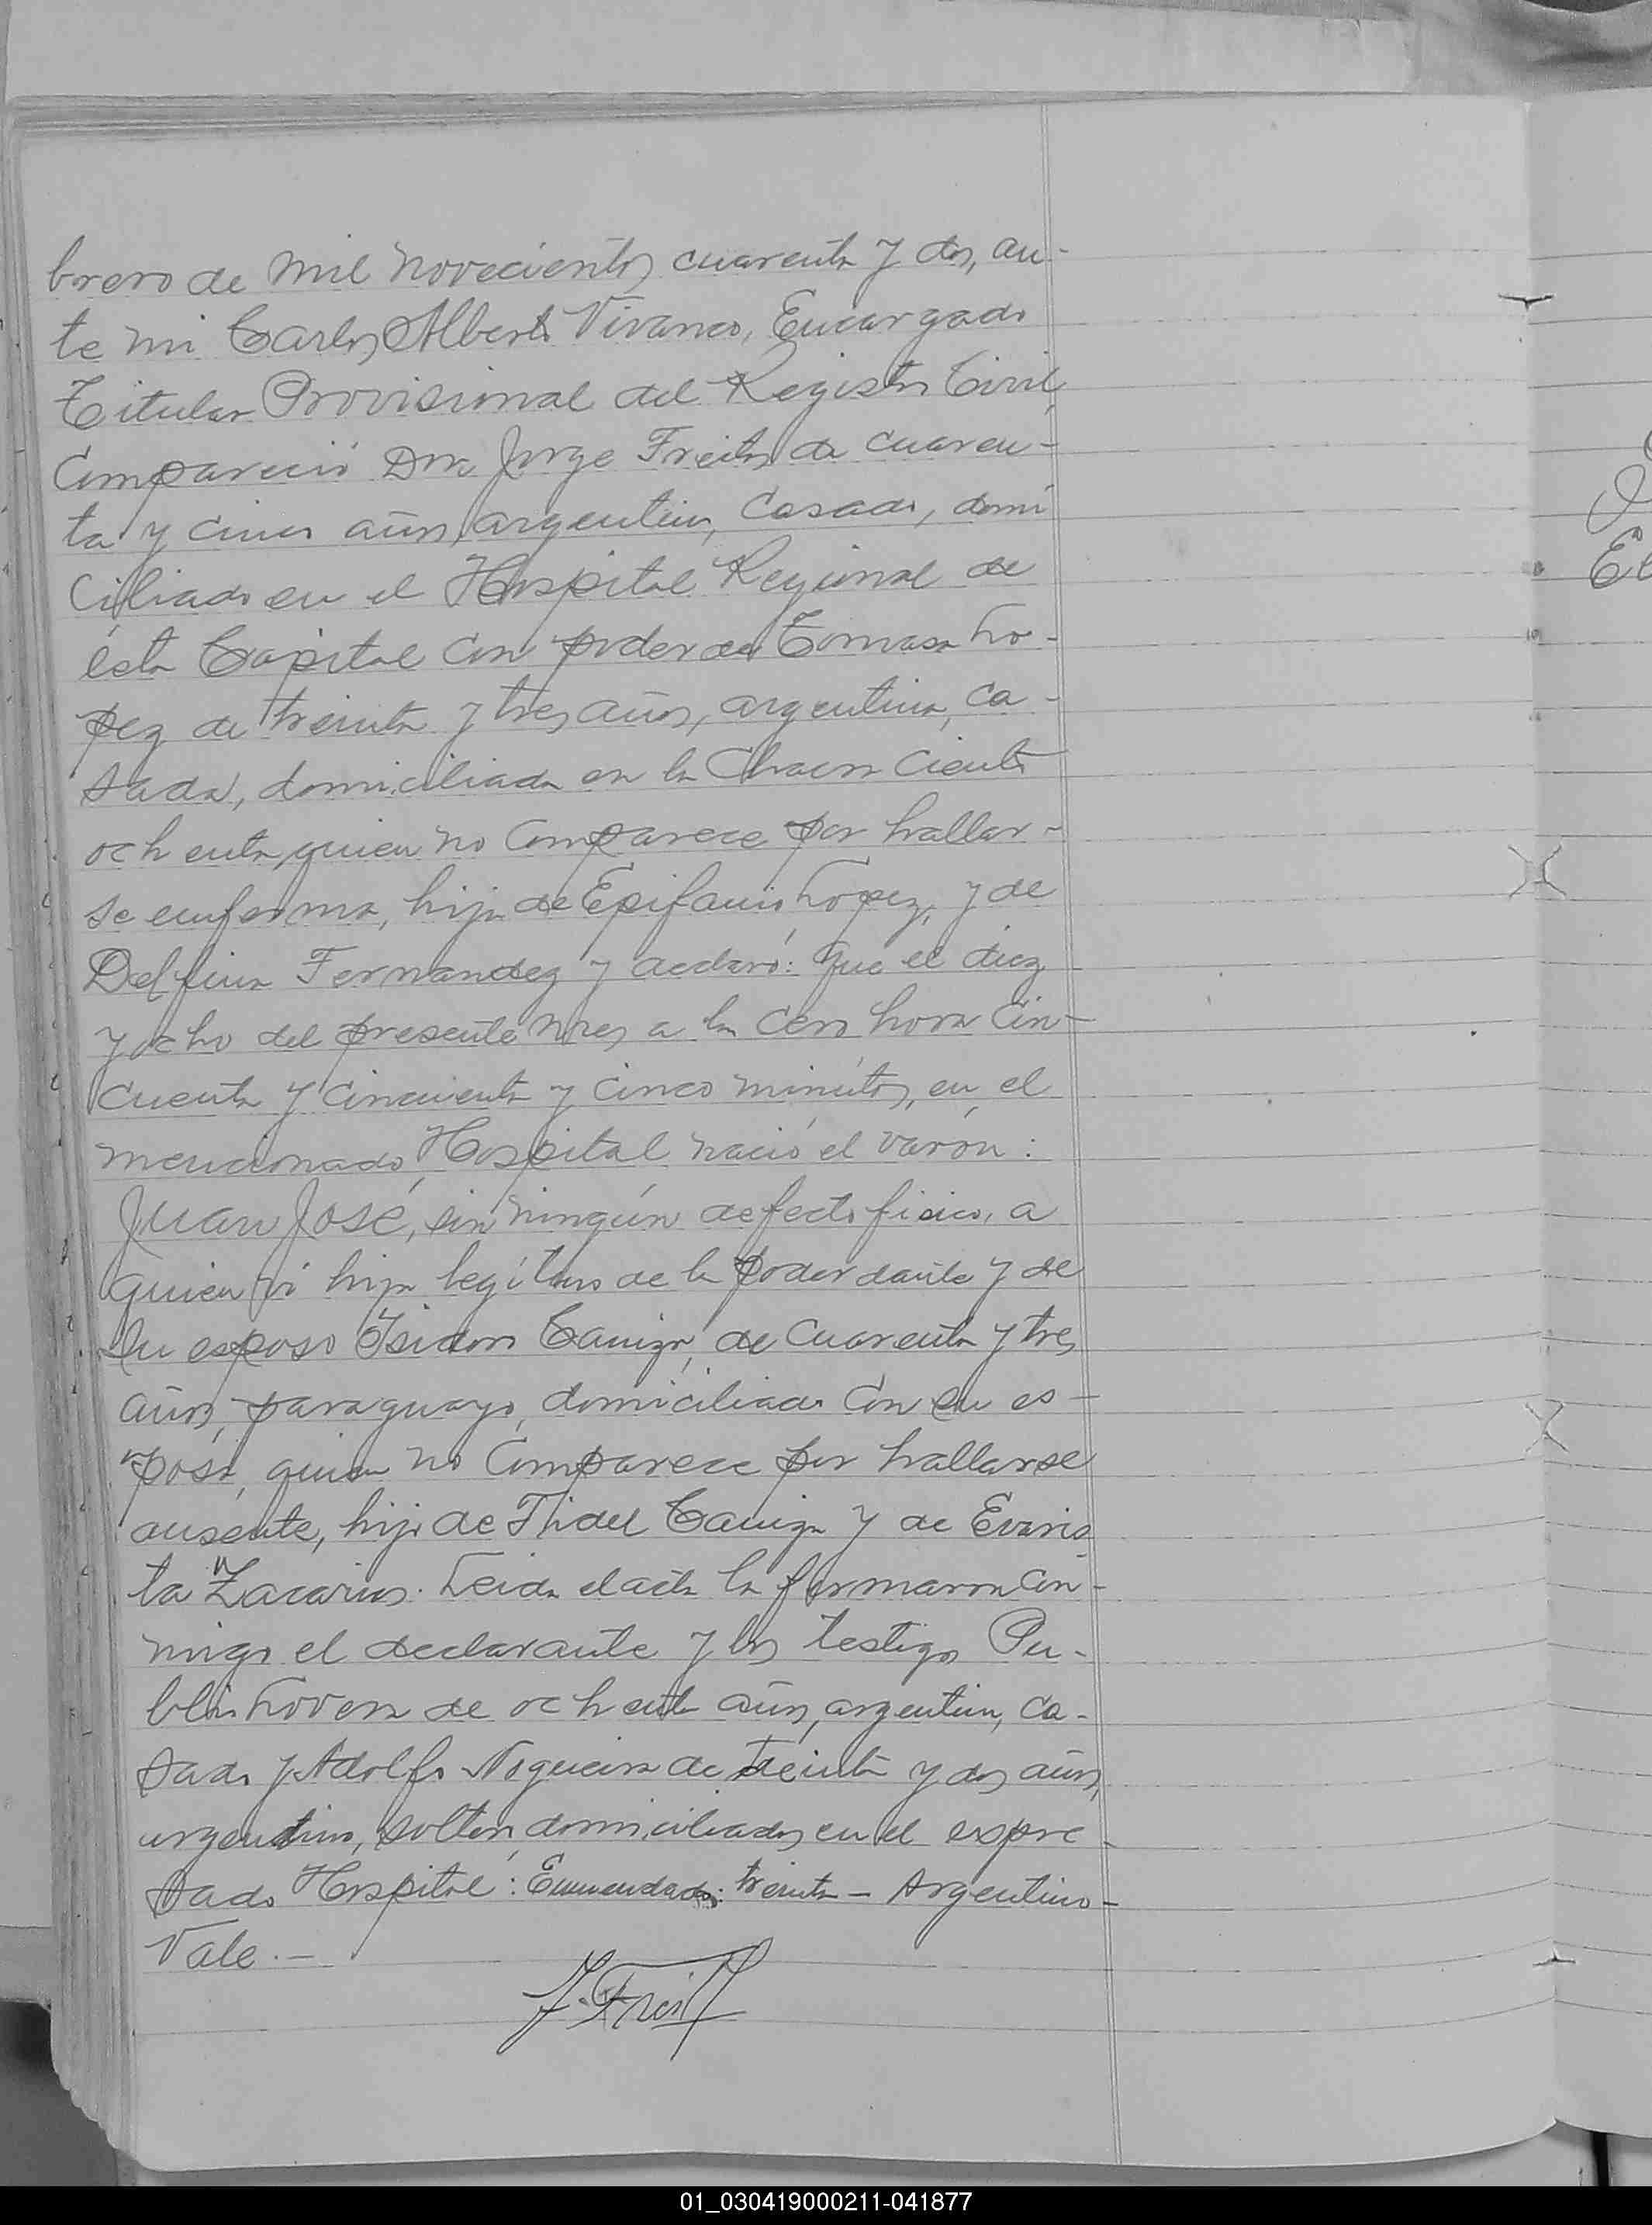 brero de mil novecientos cuarenta y dos, an-
te mi Carlos Alberto Vivanco, Encargado
Titular Provisional del Registro Civil,
Compareció Don Jorge Freitas de cuaren-
ta y cinco años, argentino, Casado, domi
ciliado en el Hospital Regional de
ésta Capital con poder de Tomasa Lo-
pez de treinta y tres años, argentina, ca-
sada, domiciliada en la Chacra Ciento
ochenta, quien no Comparece por hallar-
se enferma, hija de Epifanio Lopez, y de
Delfina Fernandez y declaró: Que el diez
y ocho del presente mes a la Cero hora Cin-
cuenta y Cincuenta y cinco minutos, en el
mencionado Hospital nació el varón:
Juan José, sin ningún defecto fisico, a
quien vi hijo legítimo de la poderdante y de
su esposo Isidoro Caniza, de cuarenta y tres
años, paraguayo, domiciliado Con su es-
posa, quien no Comparece por hallarse
ausente, hijo de Fidel Caniza y de Evaris
ta Zacarias. Leida el acta la firmaron Con-
migo el declarante y los testigos Pu-
blio Lovera de ochenta años, argentino, Ca-
sado y Adolfo Nogueira de treinta y dos años,
argentino, soltero, domiciliados en el expre
sado Hospital: Enmendado: treinta - Argentino-
Vale.-
J. Freitas
El
01_030419000211-041877